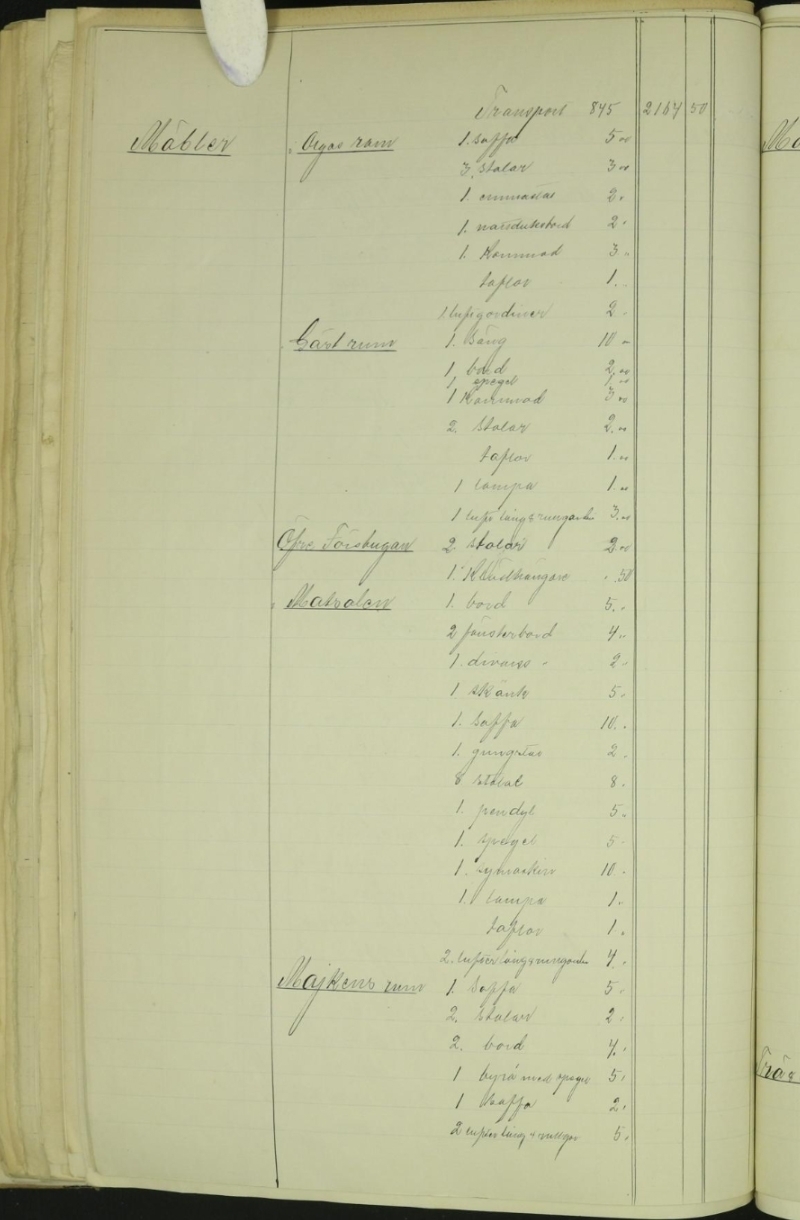 Transport 845 2167 50
Möbler Olgas rum 1. Soffa 5 "
3. Stolar 3 "
1. 2 "
1. 2 "
1. Kommod 3 "
taflor 1. "
1 luft gardiner 2 "
Gäst rum 1. Säng 10 "
1. bord 2. "
1. spegel 1 "
1 Kommod 3 "
2. Stolar 2. "
taflor 1. "
1 lampa 1. "
1 luft lång & 3. "
Öfre Förstugan 2 Stolar 2 "
1. Klädhängare " 50
Matsalen 1. bord 5. "
2 fönsterbord 4 "
1. 2 "
1 skänk 5 "
1. Soffa 10. "
1. gungstol 2 "
8 Stolar 8 "
1. pendyl 5 "
1. spegel 5 "
1. symaskin 10 "
1. lampa 1. "
taflor 1. "
2. lufter lång & 4. "
Majkens rum 1. Soffa 5 "
2. Stolar 2 "
2. bord 4. "
1 byrå med spegel 5 "
1 Soffa 2 "
2 lufter lång & 5. "
Mö
Trä &